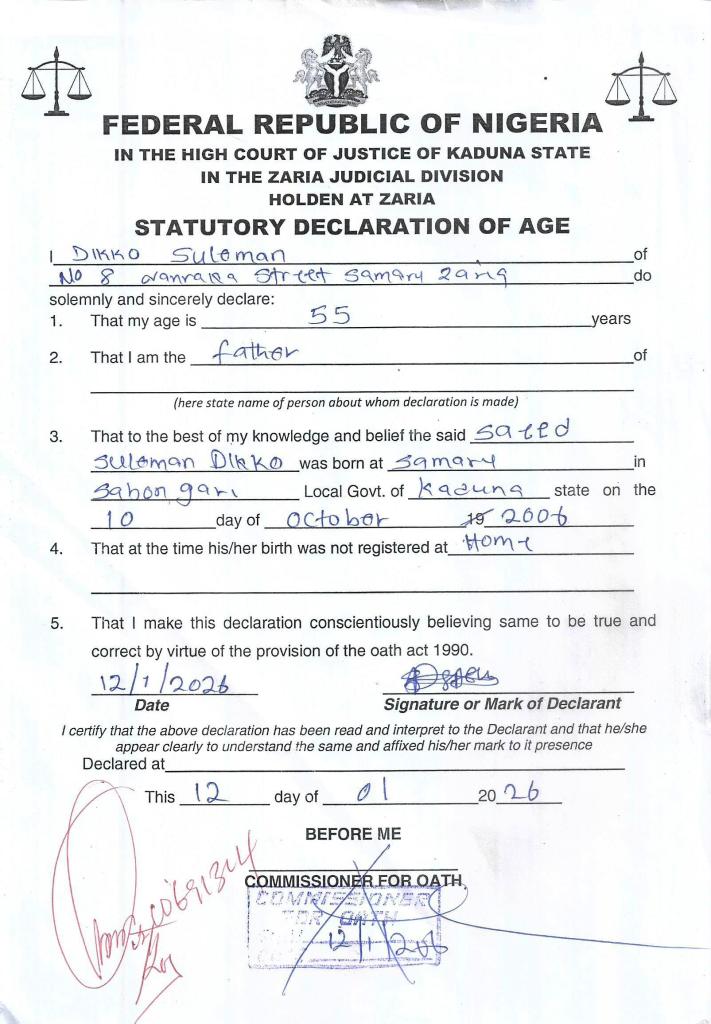 FEDERAL REPUBLIC OF NIGERIA
IN THE HIGH COURT OF JUSTICE OF KADUNA STATE
IN THE ZARIA JUDICIAL DIVISION
HOLDEN AT ZARIA
STATUTORY DECLARATION OF AGE
I DIKKO Suleman of
No 8 Street Samaru Zaria do
solemnly and sincerely declare:
1. That my age is 55 years
2. That I am the father of
(here state name of person about whom declaration is made)
3. That to the best of my knowledge and belief the said Saeed
Suleman DIKKO was born at Samaru in
Sabon gari Local Govt. of Kaduna state on the
10 day of October 19 2006
4. That at the time his/her birth was not registered at Home
5. That I make this declaration conscientiously believing same to be true and
correct by virtue of the provision of the oath act 1990.
12/1/2026
Date Signature or Mark of Declarant
I certify that the above declaration has been read and interpret to the Declarant and that he/she
appear clearly to understand the same and affixed his/her mark to it presence
Declared at
This 12 day of 01 2026
BEFORE ME
COMMISSIONER FOR OATH
COMMISSIONER
FOR OATH
12/1/206